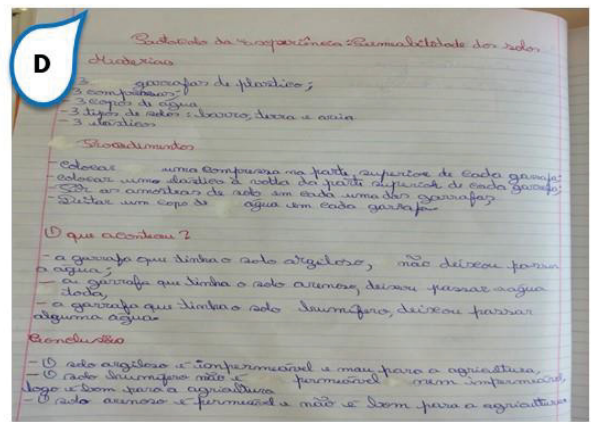 D
Protocolo da experiência: Permeabilidade dos solos
Materiais
- 3 garrafas de plástico;
- 3 compressas;
- 3 copos de água
- 3 tipos de solos: barro, terra e areia
- 3 elásticos
Procedimentos
- Colocar uma compressa na parte superior de cada garrafa;
- colocar um elástico à volta da parte superior de cada garrafa;
- Pôr as amostras de solo em cada uma das garrafas;
- Deitar um copo de água em cada garrafa.
O que aconteceu?
- a garrafa que tinha o solo argiloso, não deixou passar
a água;
- a garrafa que tinha o solo arenoso, deixou passar a água
toda,
- a garrafa que tinha o solo humífero, deixou passar
alguma água.
Conclusão
- O solo argiloso é impermeável e mau para a agricultura,
- O solo humífero não é permeável nem impermeável,
logo é bom para a agricultura
- O solo arenoso é permeável e não é bom para a agricultura